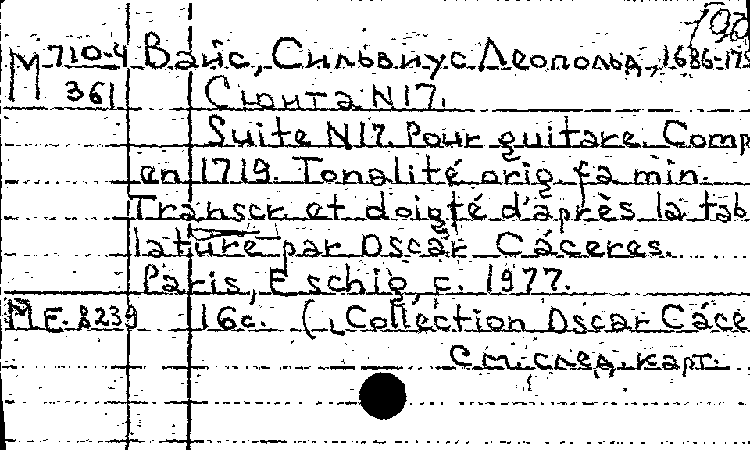 190
М 710-4 Вайс, Сильвиус Леопольд, 1686-175
361 Сюита N17.
Suite N17. Pour guitare. Comp
en 1719. Tonalité orig. fa min.
Transcr. et doigté d'après la tab
lature par Oscar Cáceres.
Paris, Eschig, c. 1977.
М Е-8239 16с. (Collection Oscar Cáce
См. след. карт.